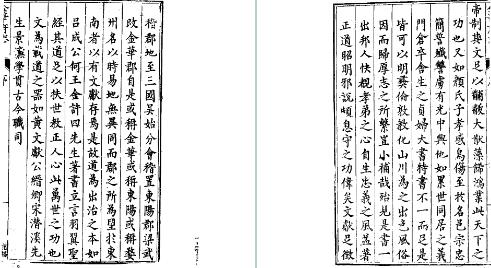 稽郡地至三國吳始分會稽置東陽郡梁武
改金華郡自是或稱金華或稱東陽或稱婺
州名以時易地無異同而郡之所為望於東
南者以有文獻存焉是故道為出治之本如
呂成公何王金許四先生著書立言羽翼聖
經其道足以扶世教正人心此萬世之功也
文為載道之器如黃文獻公縉卿宋潛溪先
生景濂學貫古今職司
帝制典文足以黼黻大猷藻飾鴻業此天下之
功也又如顏氏子孝感烏傷至牧名邑宗忠
簡誓殲讐虜有光中興他如累世同居之義
門倉卒舍生之貞婦大書特書不一而足是
皆可以明彞倫敦教化山川為之出色風俗
因而歸厚志之所繫豈小補哉殆見是書一
出邦人快覩孝弟之心自生忠義之風益著
正道昭明邪說頓息守之功偉矣文獻足徵